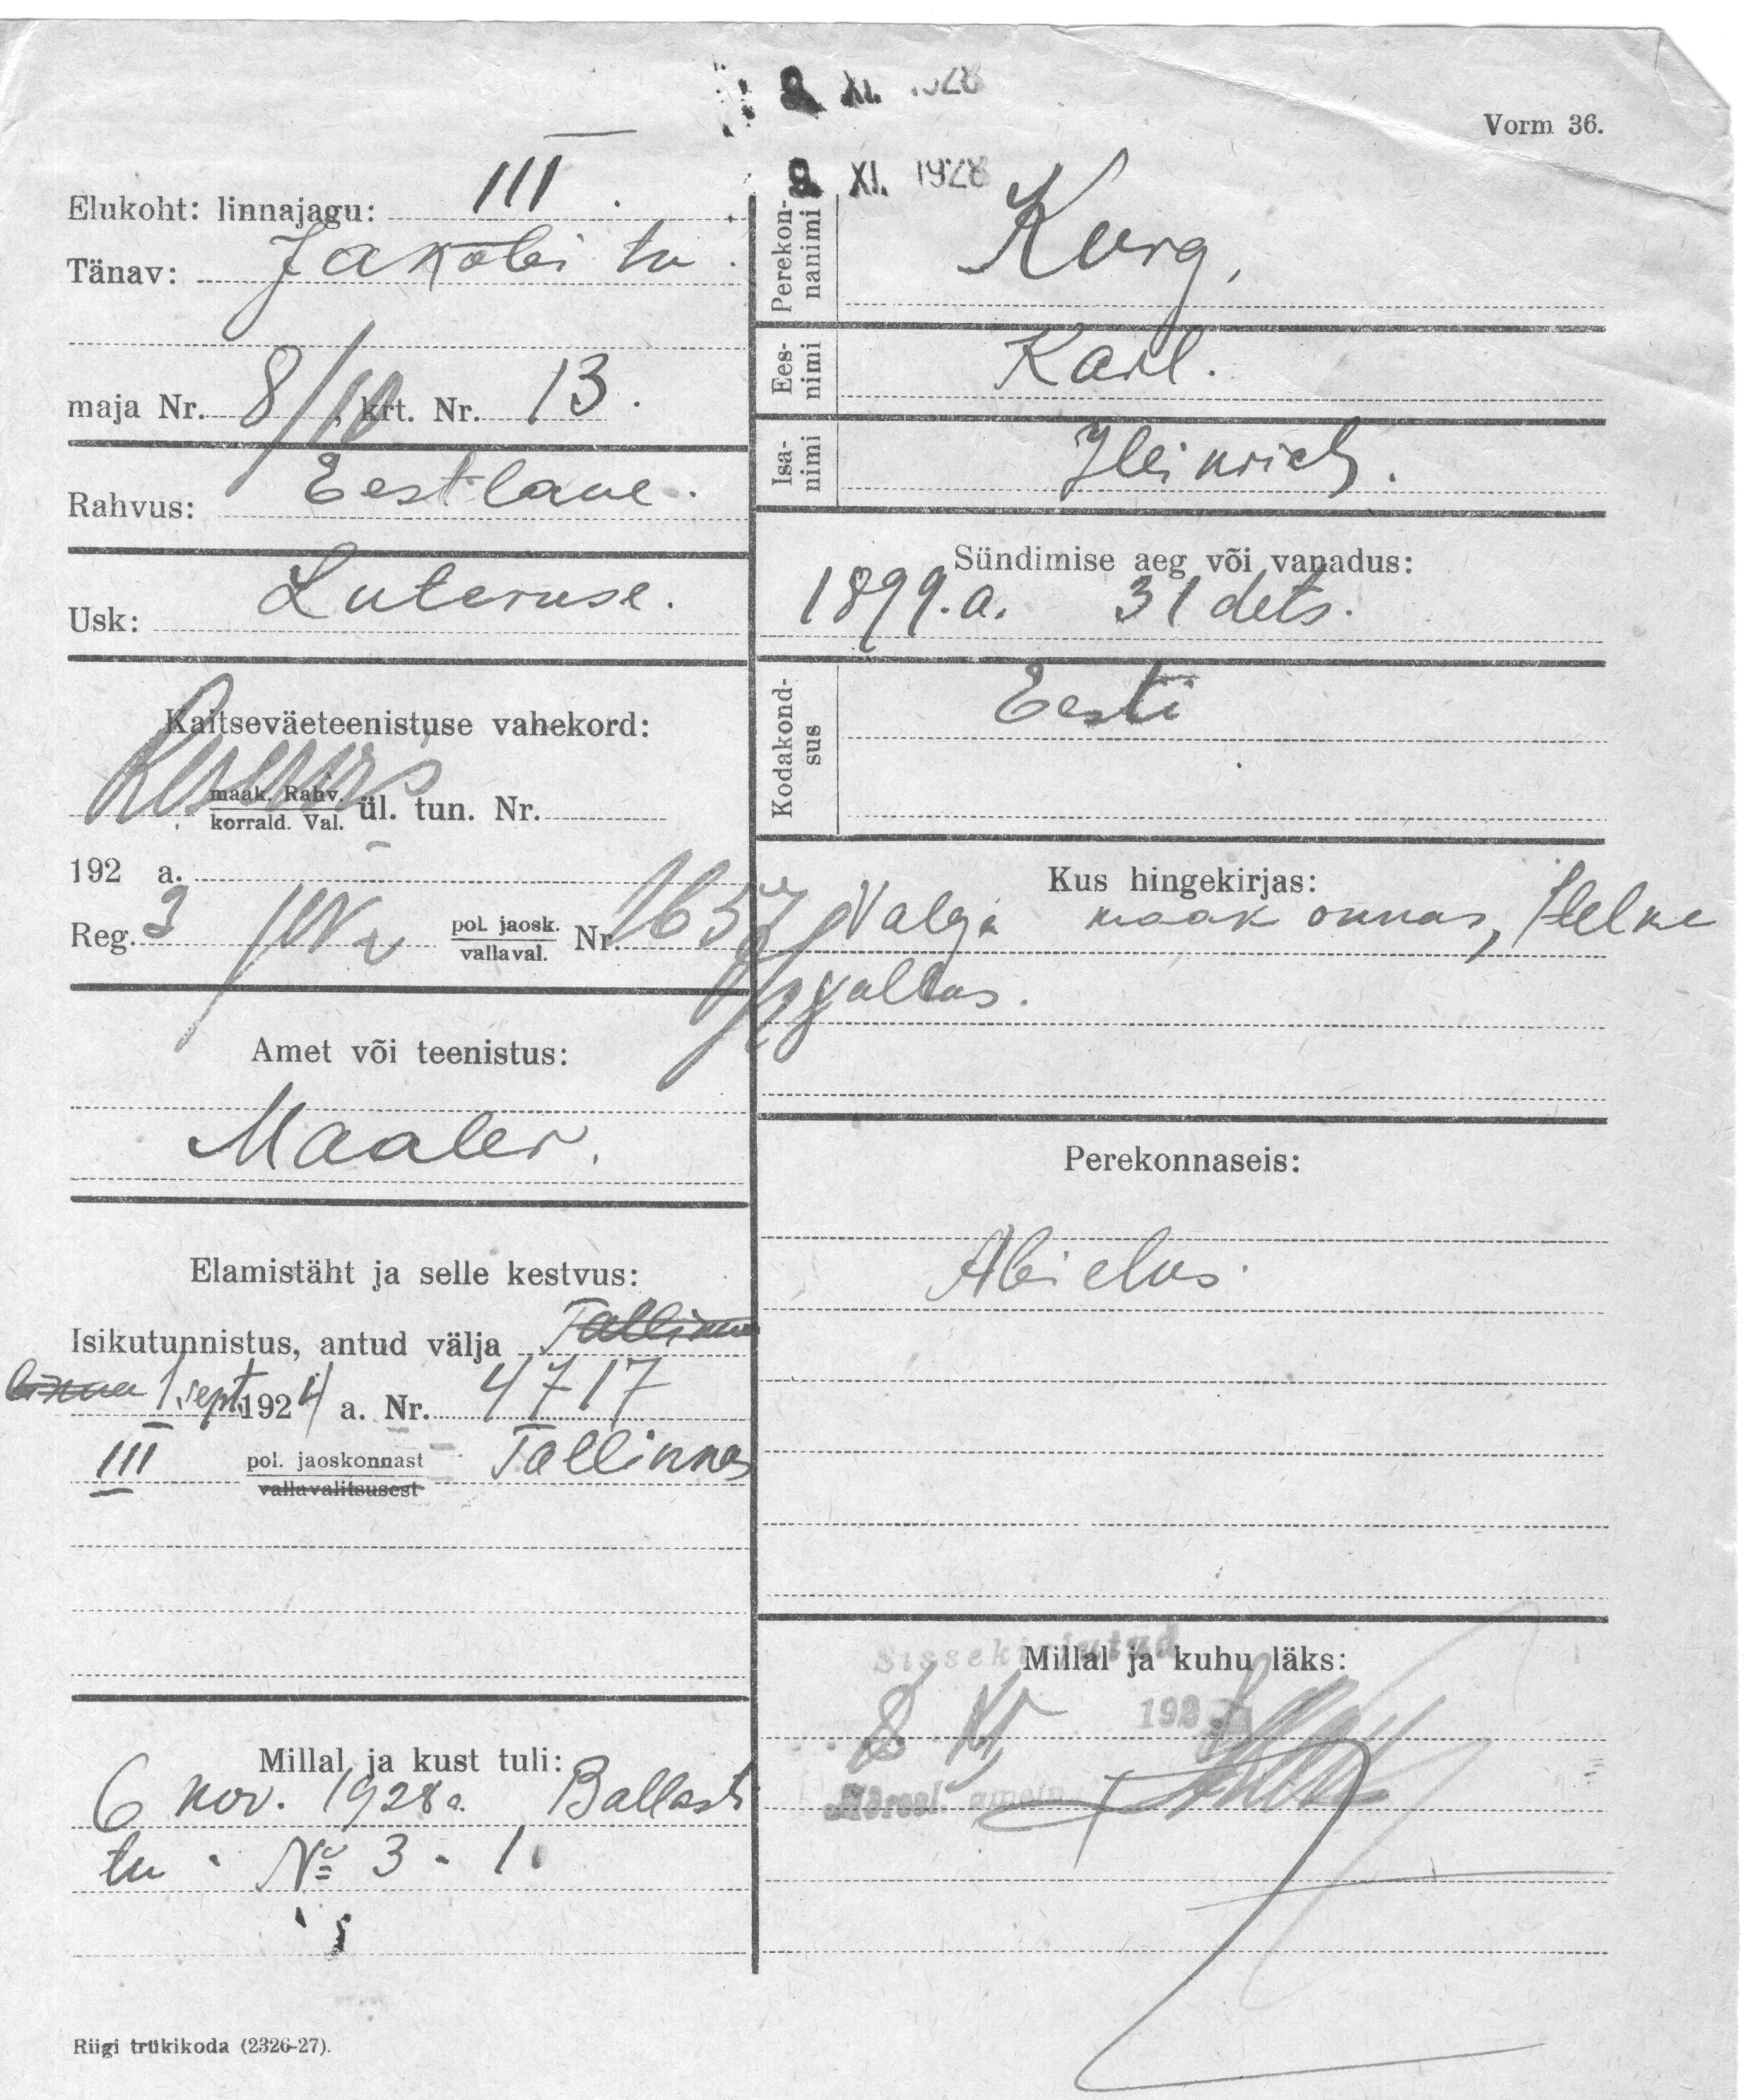 9 XI. 1928
Vorm 36.
9 XI. 1928
Elukoht: linnajagu: III.
Tänav: Jakobi tn.
maja Nr. 8/10 krt. Nr. 13.
Rahvus: Eestlane.
Usk: Luteruse.
Kaitseväeteenistuse vahekord:
maak. Rahv.
korrald. Val. ül. tun. Nr.
192 a.
Reg. 3 pol. jaosk.
vallaval. Nr. 1657
Amet või teenistus:
Maaler.
Elamistäht ja selle kestvus:
Isikutunnistus, antud välja Tallinna
linna 1 sept 1924 a. Nr. 4717
III pol. jaoskonnast Tallinnas
vallavalitsusest
Millal ja kust tuli:
6 nov. 1928 a. Ballasti
tn. № 3 - 1.
Riigi trükikoda (2326-27).
Perekonnanimi Kurg,
Eesnimi Karl.
Isanimi Heinrich.
Sündimise aeg või vanadus:
1899. a. 31 dets.
Kodakondsus Eesti
Kus hingekirjas:
Valga maakonnas, Helme
vallas.
Perekonnaseis:
Abielus.
Millal ja kuhu läks:
Sissekirjutud
8 XI 1928